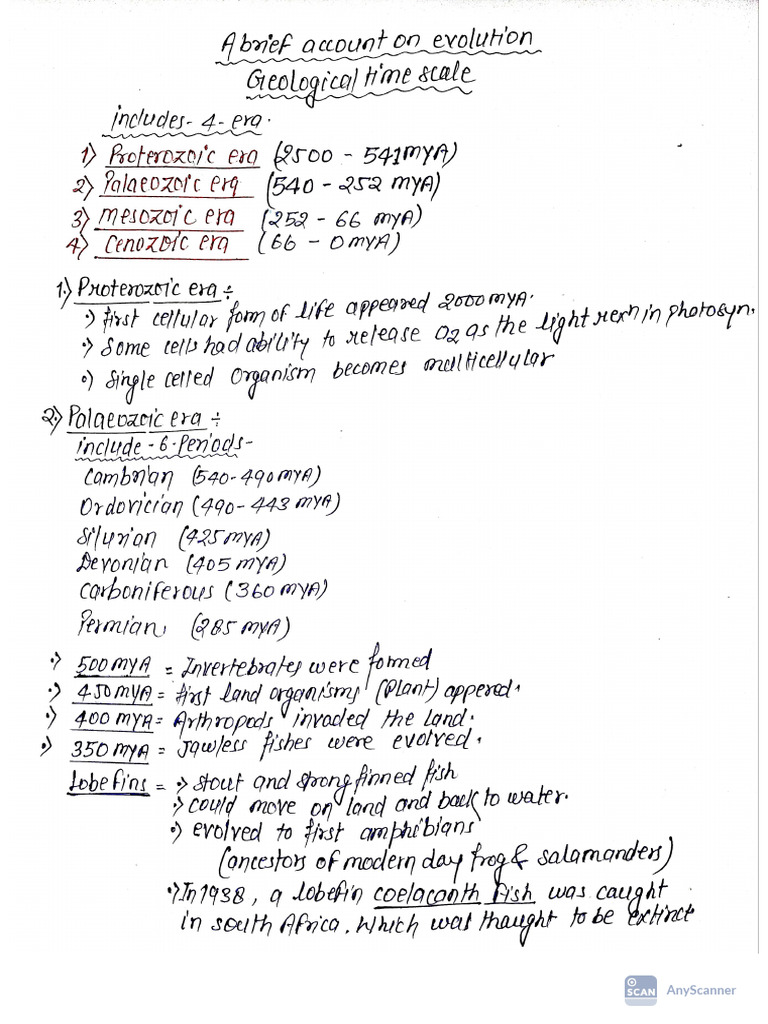 A brief account on evolution
Geological time scale
includes - 4 - era.
1) Proterozoic era (2500 - 541 MYA)
2) Palaeozoic era (540 - 252 MYA)
3) Mesozoic era (252 - 66 MYA)
4) Cenozoic era (66 - 0 MYA)
1.) Proterozoic era ÷
•) First cellular form of life appeared 2000 MYA.
•) Some cells had ability to release O2 as the light rexn in photosyn.
•) Single celled organism becomes multicellular
2.) Palaeozoic era ÷
include - 6 - Periods -
Cambrian (540 - 490 MYA)
Ordovician (490 - 443 MYA)
Silurian (425 MYA)
Devonian (405 MYA)
Carboniferous (360 MYA)
Permian (285 MYA)
•) 500 MYA = Invertebrates were formed
•) 450 MYA = First land organisms (Plant) appered.
•) 400 MYA = Arthropods invaded the land.
•) 350 MYA = Jawless fishes were evolved.
Lobefins = •) stout and strong finned fish
•) could move on land and back to water.
•) evolved to first amphibians
(ancestors of modern day frog & salamanders)
•) In 1938, a lobefin coelacanth fish was caught
in south Africa. Which was thaught to be extinct
SCAN AnyScanner